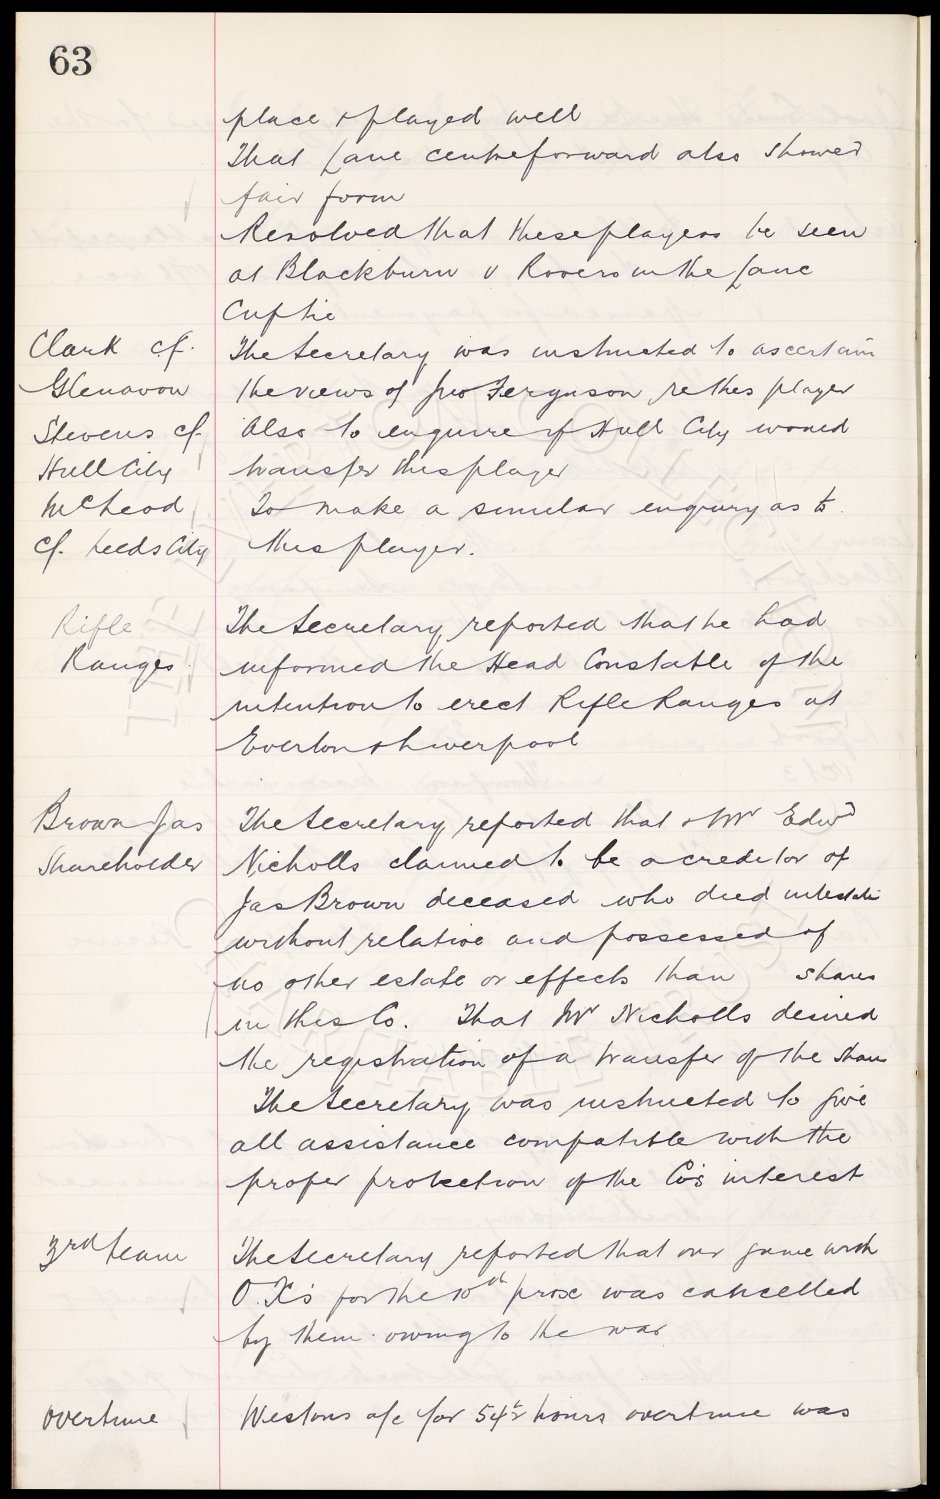 63
place & played well
That Lane centreforward also showed
fair form
Resolved that these players be seen
at Blackburn v Rovers in the Lanc
Cup tie
Clark cf. The Secretary was instructed to ascertain
Glenavon the views of Jno Ferguson re this player
Stevens cf. Also to enquire if Hull City would
Hull City transfer this player
McLeod To make a similar enquiry as to
cf. Leeds City this player.
Rifle The Secretary reported that he had
Ranges. informed the Head Constable of the
intention to erect Rifle Ranges at
Everton & Liverpool
Brown Jas The Secretary reported that Mr Edwd
Shareholder Nicholls claimed to be a creditor of
Jas Brown deceased who died intestate
without relative and possessed of
no other estate or effects than shares
in this Co. That Mr Nicholls desired
the registration of a transfer of the shares
The Secretary was instructed to give
all assistance compatible with the
proper protection of the Co's interest
3rd team The Secretary reported that our game with
O.X's for the 10th prox was cancelled
by them owing to the war
overtime Westons a/c for 54½ hours overtime was